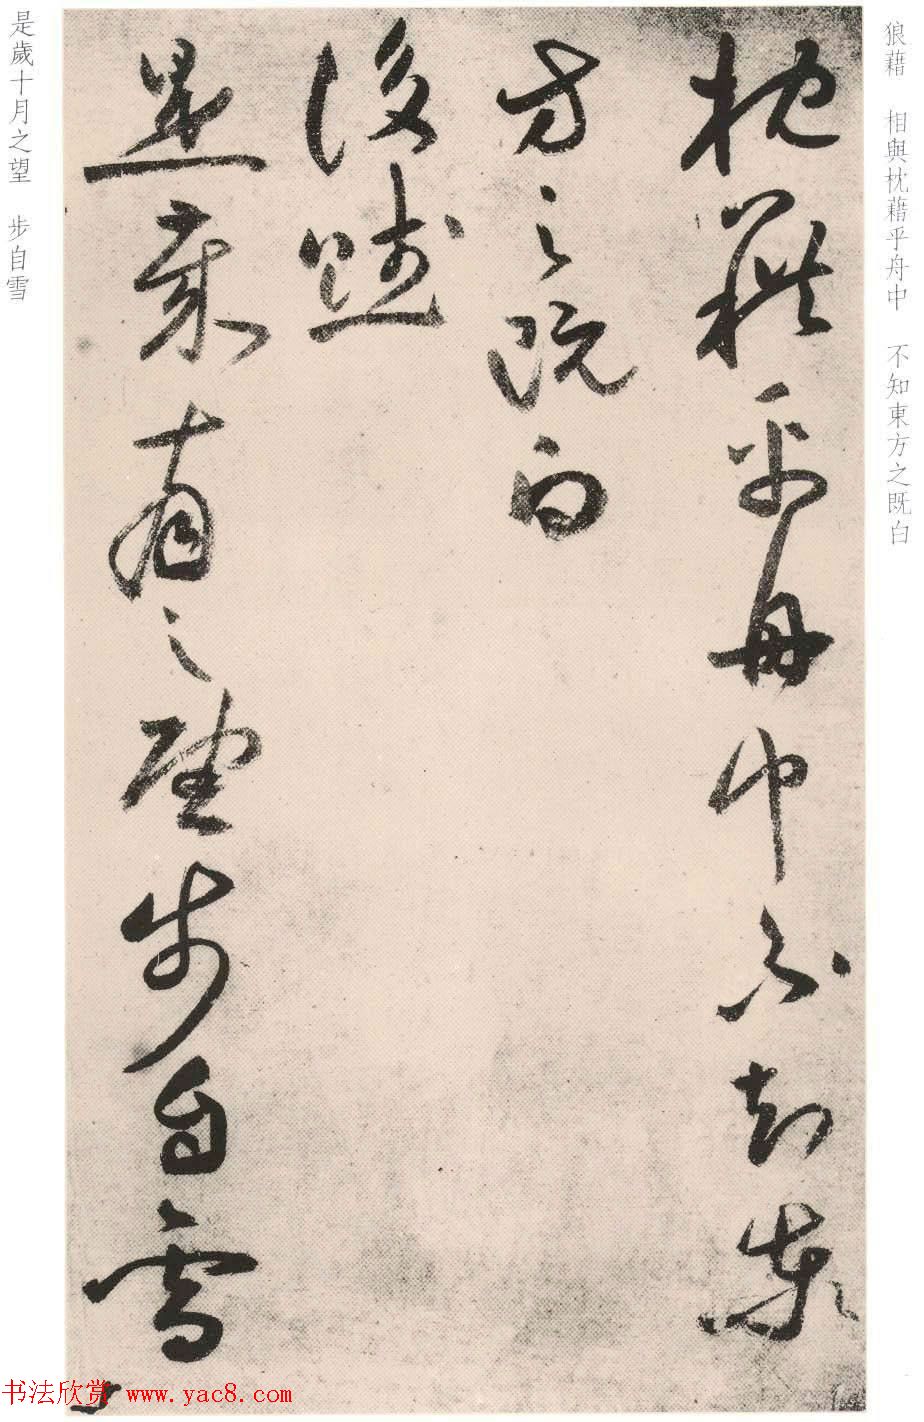 狼藉 相與枕藉乎舟中 不知東方之既白
枕藉乎舟中不知東
方之既白
後賦
是歲十月之望步自雪
是歲十月之望 步自雪
书法欣赏 www.yac8.com